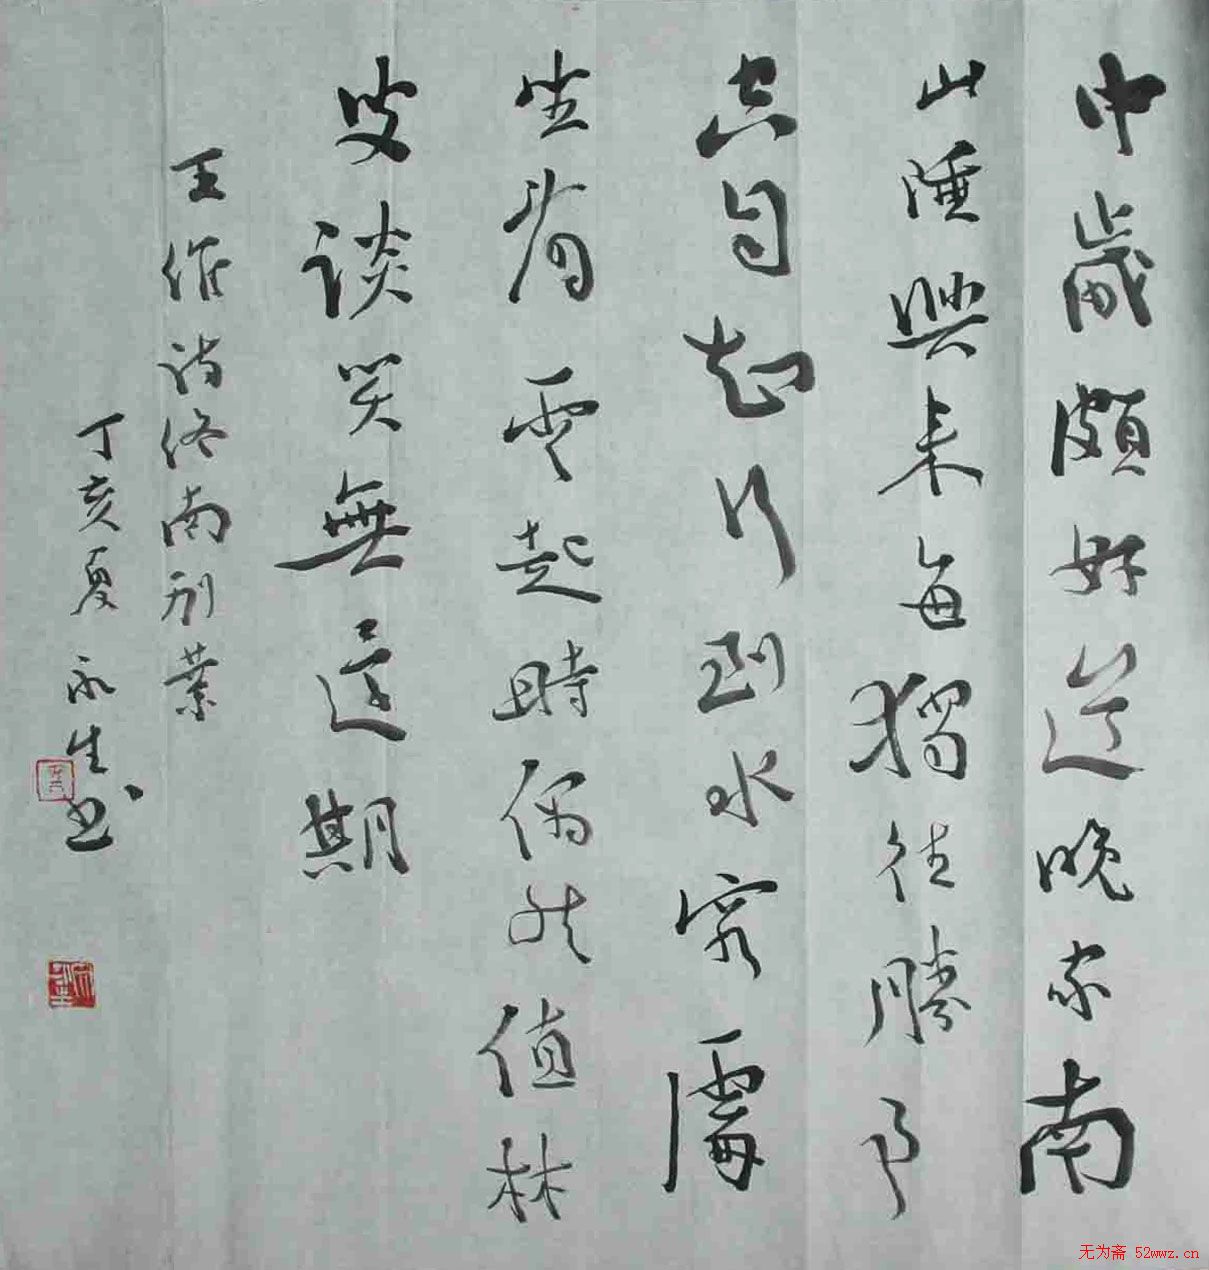 中歲頗好道晚家南
山陲興來每獨往勝事
空自知行到水窮處
坐看雲起時偶然值林
叟談笑無還期
王維詩終南别業
丁亥夏永生书
无为斋 52wwz.cn